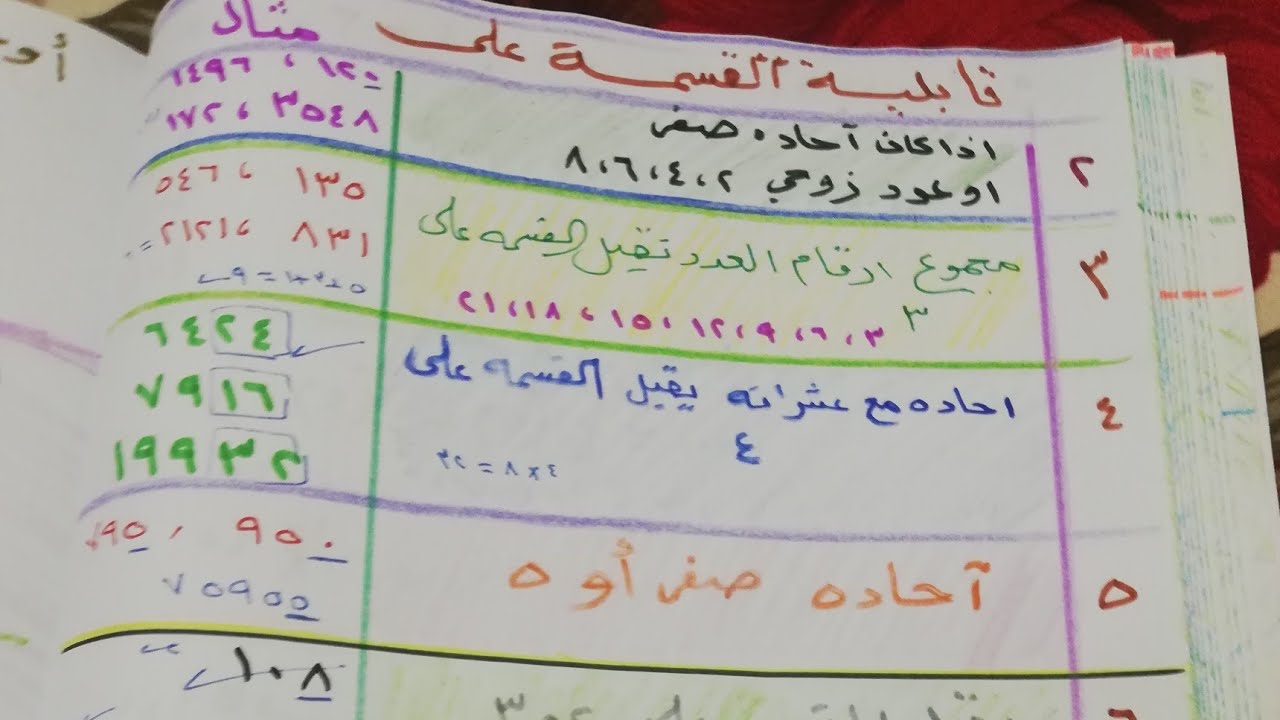 قابلية القسمة على مثال
٢
اذا كان آحاده صفر
او عدد زوجي ٢،٤،٦،٨
١٢٠ ، ١٤٩٦
٣٥٤٨ ، ١٧٢
٣
مجموع ارقام العدد تقبل القسمه على
٣ ٣،٦،٩،١٢،١٥،١٨،٢١
١٣٥ ، ٥٤٦
٨٣١ ،٢١٢١
٤
احاده مع عشراته يقبل القسمه على
٤
٤×٨=٣٢
٦٤٢٤
٧٩١٦
١٩٩٣٢
٥
آحاده صفر أو ٥
٩٥٠ ،
٧٥٩٥٥
١٠٨